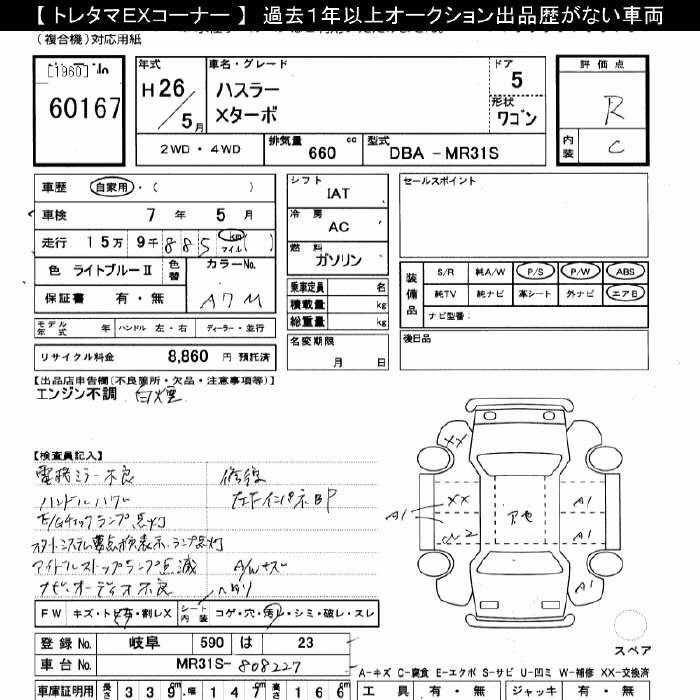 【 トレタマEXコーナー 】 過去1年以上オークション出品歴がない車両
(複合機)対応用紙
[1960]
60167
年式
H 26 / 5 月
車名・グレード
ハスラー
Xターボ
ドア
5
形状
ワゴン
評価点
R
内装
C
2WD ・ 4WD
排気量
660 cc
型式
DBA － MR31S
車歴 自家用・( )
車検 7 年 5 月
走行 15万 9千 885 km マイル ( )
色 ライトブルーⅡ 色替
カラーNo.
A7M
保証書 有・無
モデル年式 年 ハンドル 左・右 ディーラー・並行
リサイクル料金 8,860 円 預託済
シフト
IAT
冷房
AC
燃料
ガソリン
乗車定員 名
積載量 kg
総重量 kg
名変期限
月 日
セールスポイント
装備品
S/R 純A/W P/S P/W ABS
純TV 純ナビ 革シート 外ナビ エアB
ナビ型番:
後日品
【出品店申告欄(不良箇所・欠品・注意事項等)】
エンジン不調 白煙
【検査員記入】
電格ミラー不良
修復
左ドインパネBP
E/Gチェックランプ点灯
スタートシステム要点検表示・ランプ点灯
アイドルストップランプ点滅
A/Wキズ
ナビ・オーディオ不良
ヘタリ
XX
XX
A1
A1
A1
A1
アセ
スペア
FW キズ・トビ有・割レX
シート内装 コゲ・穴・汚レ・シミ・破レ・スレ
登録No. 岐阜 590 は 23
車台No. MR31S- 808227
車庫証明用 長さ 339 cm 幅 147 cm 高さ 166 cm
A-キズ C-腐食 E-エクボ S-サビ U-凹ミ W-補修 XX-交換済
工具 有・無 ジャッキ 有・無